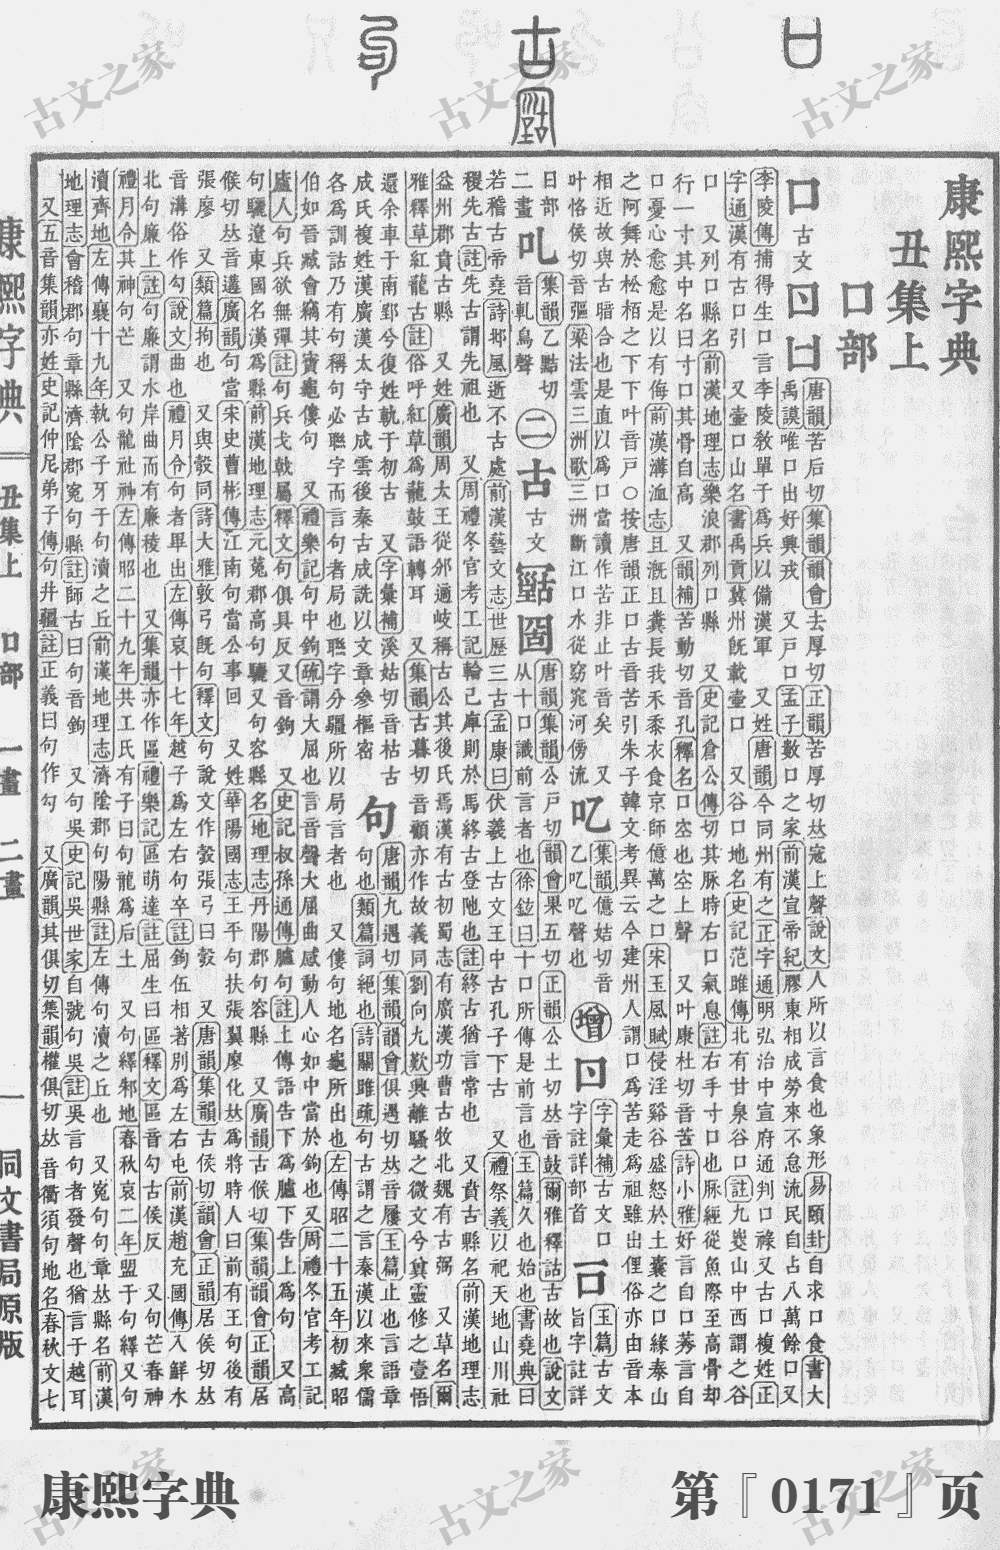 康熙字典
丑集上
口部
口 古文 𠙵 唐韻苦后切集韻韻會去厚切正韻苦厚切𠀤寇上聲說文人所以言食也象形易頤卦自求口食書大
禹謨唯口出好興戎 又戶口孟子數口之家前漢宣帝紀膠東相成勞來不怠流民自占八萬餘口又
李陵傳捕得生口言李陵敎單于爲兵以備漢軍 又姓唐韻今同州有之正字通明弘治中宣府通判口祿又古口複姓正
字通漢有古口引 又壷口山名書禹貢冀州旣載壷口 又谷口地名史記范雎傳北有甘泉谷口註九嵏山中西謂之谷
口 又列口縣名前漢地理志樂浪郡列口縣 又史記倉公傳切其脉時右口氣急註右手寸口也脉經從魚際至高骨却
行一寸其中名曰寸口其骨自高 又韻補苦動切音孔釋名口空也空上聲 又叶康杜切音苦詩小雅好言自口莠言自
口憂心愈愈是以有侮前漢溝洫志且漑且糞長我禾黍衣食京師億萬之口宋玉風賦侵淫谿谷盛怒於土囊之口緣泰山
之阿舞於松栢之下下叶音戸○按唐韻正口古音苦引朱子韓文考異云今建州人謂口爲苦走爲祖雖出俚俗亦由音本
相近故與古暗合也是直以爲口當讀作苦非止叶音矣 又
叶恪侯切音彄梁法雲三洲歌三洲斷江口水從窈窕河傍流 𠮙 集韻億姑切音
乙𠮙𠮙聲也 增 𠙵 字彙補古文口
字註詳部首 𠮛 玉篇古文
旨字註詳
日部
二畫 𠮟 集韻乙黠切
音軋鳥聲 二 古 古文 𠖠 𠚃 唐韻集韻公戸切韻會果五切正韻公土切𠀤音鼓爾雅釋詁古故也說文
从十口識前言者也徐鉉曰十口所傳是前言也玉篇久也始也書堯典曰
若稽古帝堯詩邶風逝不古處前漢藝文志世歷三古孟康曰伏羲上古文王中古孔子下古 又禮祭義以祀天地山川社
稷先古註先古謂先祖也 又周禮冬官考工記輪已庳則於馬終古登阤也註終古猶言常也 又賁古縣名前漢地理志
益州郡賁古縣 又姓廣韻周太王從邠適岐稱古公其後氏焉漢有古初蜀志有廣漢功曹古牧北魏有古弼 又草名爾
雅釋草紅蘢古註俗呼紅草爲蘢鼓語轉耳 又集韻古暮切音顧亦作故義同劉向九歎興離騷之微文兮冀靈修之壹悟
還余車于南郢兮復往軌于初古 又字彙補溪姑切音枯古
成氏複姓漢廣漢太守古成雲後秦古成詵以文章參樞密 句 唐韻九遇切集韻韻會俱遇切𠀤音屨玉篇止也言語章
句也類篇詞絕也詩關雎疏句古謂之言秦漢以來衆儒
各爲訓詁乃有句稱句必聯字而言句者局也聯字分疆所以局言者也 又僂句地名龜所出也左傳昭二十五年初臧昭
伯如晉臧會竊其寶龜僂句 又禮樂記句中鉤疏謂大屈也言音聲大屈曲感動人心如中當於鉤也又周禮冬官考工記
廬人句兵欲無彈註句兵戈戟屬釋文句俱具反又音鉤 又史記叔孫通傳臚句註上傳語告下爲臚下告上爲句 又高
句驪遼東國名漢爲縣前漢地理志元菟郡高句驪又句容縣名地理志丹陽郡句容縣 又廣韻古候切集韻韻會正韻居
候切𠀤音遘廣韻句當宋史曹彬傳江南句當公事回 又姓華陽國志王平句扶張翼廖化𠀤爲將時人曰前有王句後有
張廖 又類篇拘也 又與彀同詩大雅敦弓旣句釋文句說文作彀張弓曰彀 又唐韻集韻古侯切韻會正韻居侯切𠀤
音溝俗作勾說文曲也禮月令句者畢出左傳哀十七年越子爲左右句卒註鉤伍相著別爲左右屯前漢趙充國傳入鮮水
北句廉上註句廉謂水岸曲而有廉稜也 又集韻亦作區禮樂記區萌達註屈生曰區釋文區音勾古侯反 又句芒春神
禮月令其神句芒 又句龍社神左傳昭二十九年共工氏有子曰句龍爲后土 又句繹邾地春秋哀二年盟于句繹又句
瀆齊地左傳襄十九年執公子牙于句瀆之丘前漢地理志濟陰郡句陽縣註左傳句瀆之丘也 又寃句句章𠀤縣名前漢
地理志會稽郡句章縣濟陰郡寃句縣註師古曰句音鉤 又句吳史記吳世家自號句吳註吳言句者發聲也猶言于越耳
又五音集韻亦姓史記仲尼弟子傳句井疆註正義曰句作勾 又廣韻其俱切集韻權俱切𠀤音衢須句地名春秋文七
康熙字典 丑集上 口部 一畫 二畫 一 同文書局原版
古文之家
古文之家
古文之家
古文之家
古文之家
古文之家
康熙字典
第『0171』页